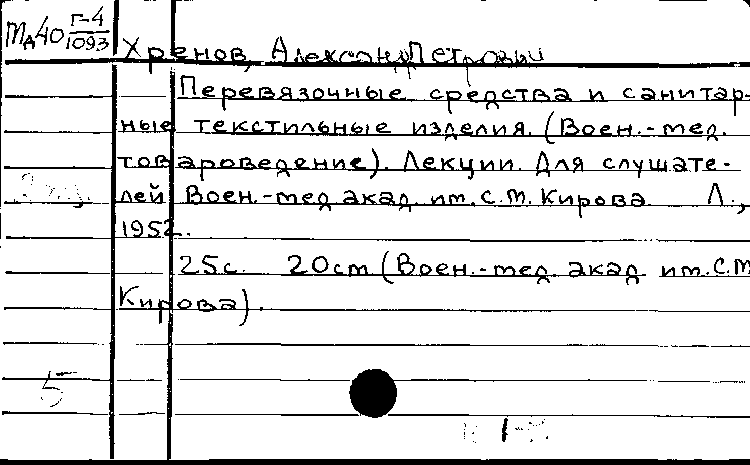 Мд40 Г-4
1093
Хренов, Александр Петрович
Перевязочные средства и санитар-
ные текстильные изделия. (Воен.-мед.
товароведение). Лекции. Для слушате-
лей Воен.-мед акад. им. С.М. Кирова. Л.,
1952.
25с. 20см (Воен.-мед. акад им. С.М
Кирова).
5